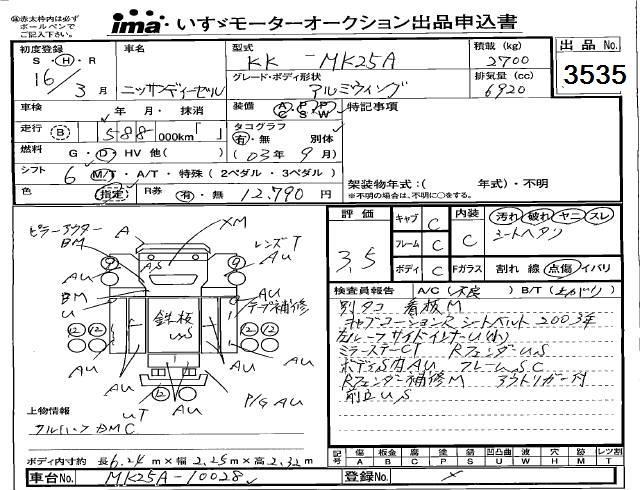 ※赤太枠内は必ず
ボールペンで
ご記入下さい。
ima いすゞモーターオークション出品申込書
初度登録
S・H・R
16/3月
車名
ニッサンディーゼル
型式
KK-MK25A
グレード・ボディ形状
アルミウィング
積載(kg)
2700
排気量(cc)
6920
出品No.
3535
車検 年 月・抹消
装備 AC PS PW
特記事項
走行 B 588 000km「 」
タコグラフ
有・無 別体
(03年9月)
燃料 G・D・HV 他( )
シフト 6 M/T・A/T・特殊(2ペダル・3ペダル)
架装物年式:( 年式)・不明
※架装物の年式が不明の場合は、不明に○をする。
色 指定 R券 有・無 12,790円
評価
3.5
キャブ C
フレーム C
ボディ C
内装 C
Fガラス
汚れ 破れ ヤニ スレ
シートヘタリ
割れ 線 点傷 イバリ
ピラーアウター
BM
A
XM
レンズT
AU
AS
AU
BM
U
テープ補修
鉄板
US
AU
AU
AU
AU
UT
AU
P/G AU
12
12
12
12
9
9
検査員報告 A/C(不良) B/T(上がり)
別タコ 看板M
キャブコーションR シートベルト2003年
左ルーフサイドインナーU(小)
ミラーステーCT RフェンダーUS
ボディS内AU フレームSC
Rフェンダー補修M アウトリガー付
前立US
上物情報
フルハーフ BMC
ボディ内寸約 長6.24m×幅2.25m×高2.32m
記号
傷 A
板金 B
腐 C
塗 P
錆 S
凹凸曲 U
波 W
穴 H
跡 M
レツ割 T
車台No. MK25A-10028
登録No. ×